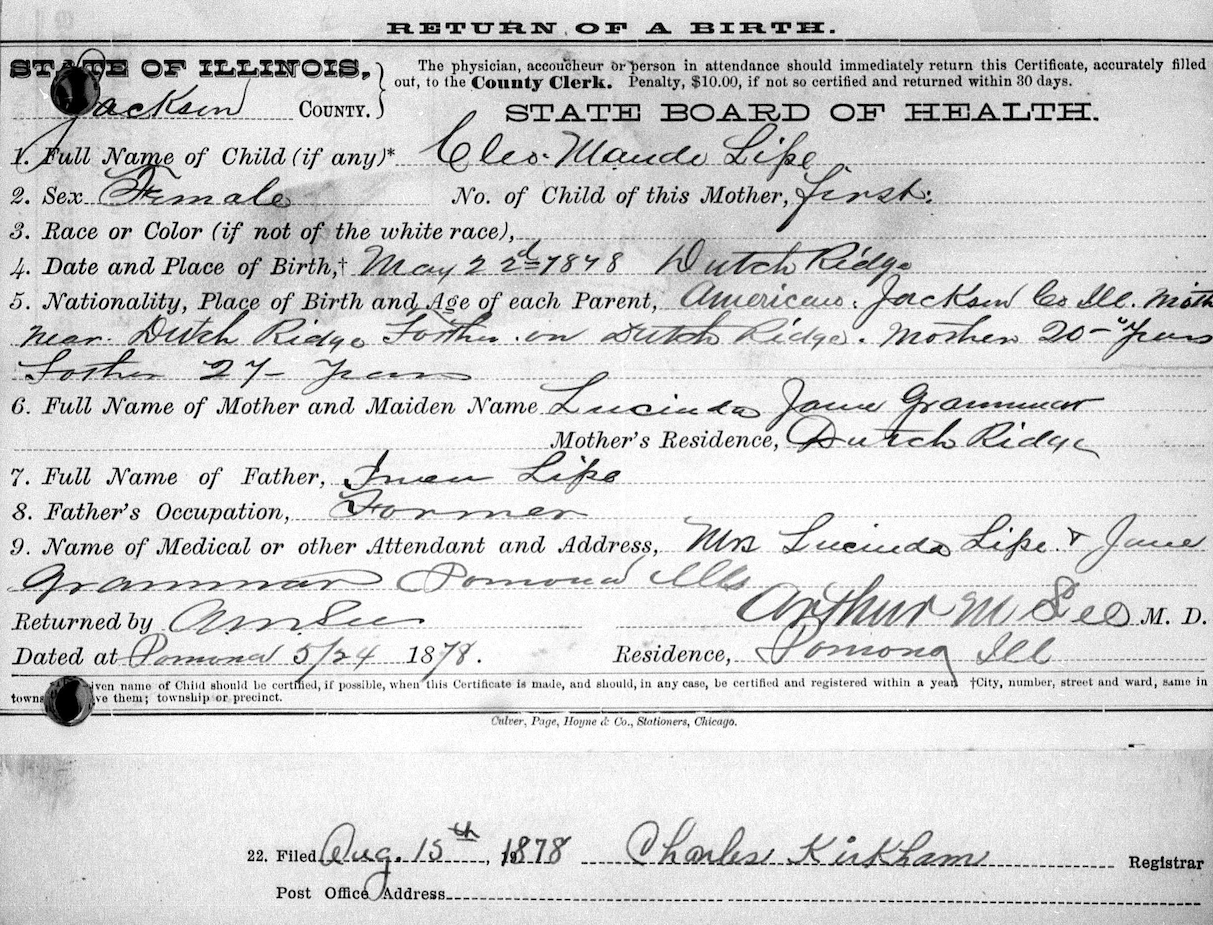 RETURN OF A BIRTH.
STATE OF ILLINOIS,
Jackson COUNTY.
The physician, accoucheur or person in attendance should immediately return this Certificate, accurately filled
out, to the County Clerk. Penalty, $10.00, if not so certified and returned within 30 days.
STATE BOARD OF HEALTH.
1. Full Name of Child (if any)* Cleo Maude Lipe
2. Sex Female No. of Child of this Mother, first.
3. Race or Color (if not of the white race),
4. Date and Place of Birth,† May 22d 1878 Dutch Ridge
5. Nationality, Place of Birth and Age of each Parent, American. Jackson Co Ill. Moth
near Dutch Ridge Father on Dutch Ridge. Mother 20 - Years
Father 27 - Years
6. Full Name of Mother and Maiden Name Lucinda Jane Grammar
Mother's Residence, Dutch Ridge
7. Full Name of Father, Lipe
8. Father's Occupation, Farmer
9. Name of Medical or other Attendant and Address, Mrs Lucinda Lipe & Jane
Grammar Pomona Ills
Returned by A.M. Lee Arthur M Lee M. D.
Dated at Pomona 5/24 1878. Residence, Pomona Ill
iven name of Child should be certified, if possible, when this Certificate is made, and should, in any case, be certified and registered within a year †City, number, street and ward, same in
towns ve them; township or precinct.
Culver, Page, Hoyne & Co., Stationers, Chicago.
22. Filed Aug. 15th, 1878 Charles Kirkham Registrar
Post Office Address